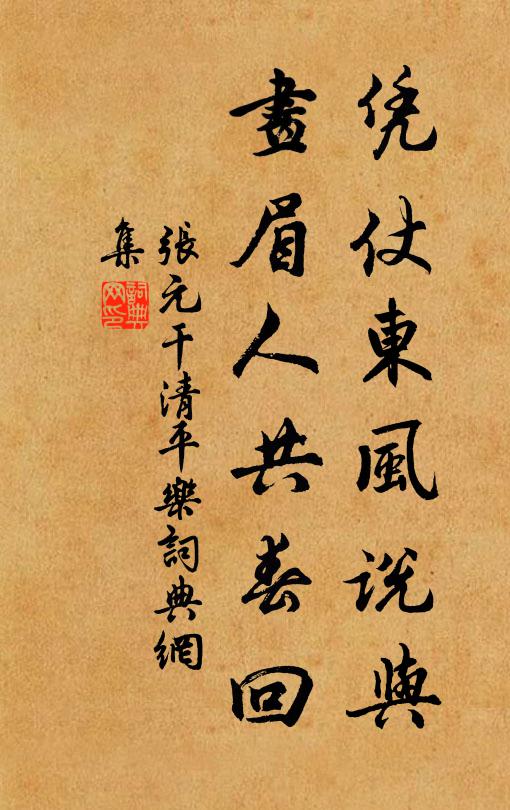 凭仗東風說與
畫眉人共春回
張元干清平樂詞典網
集
詞典網印